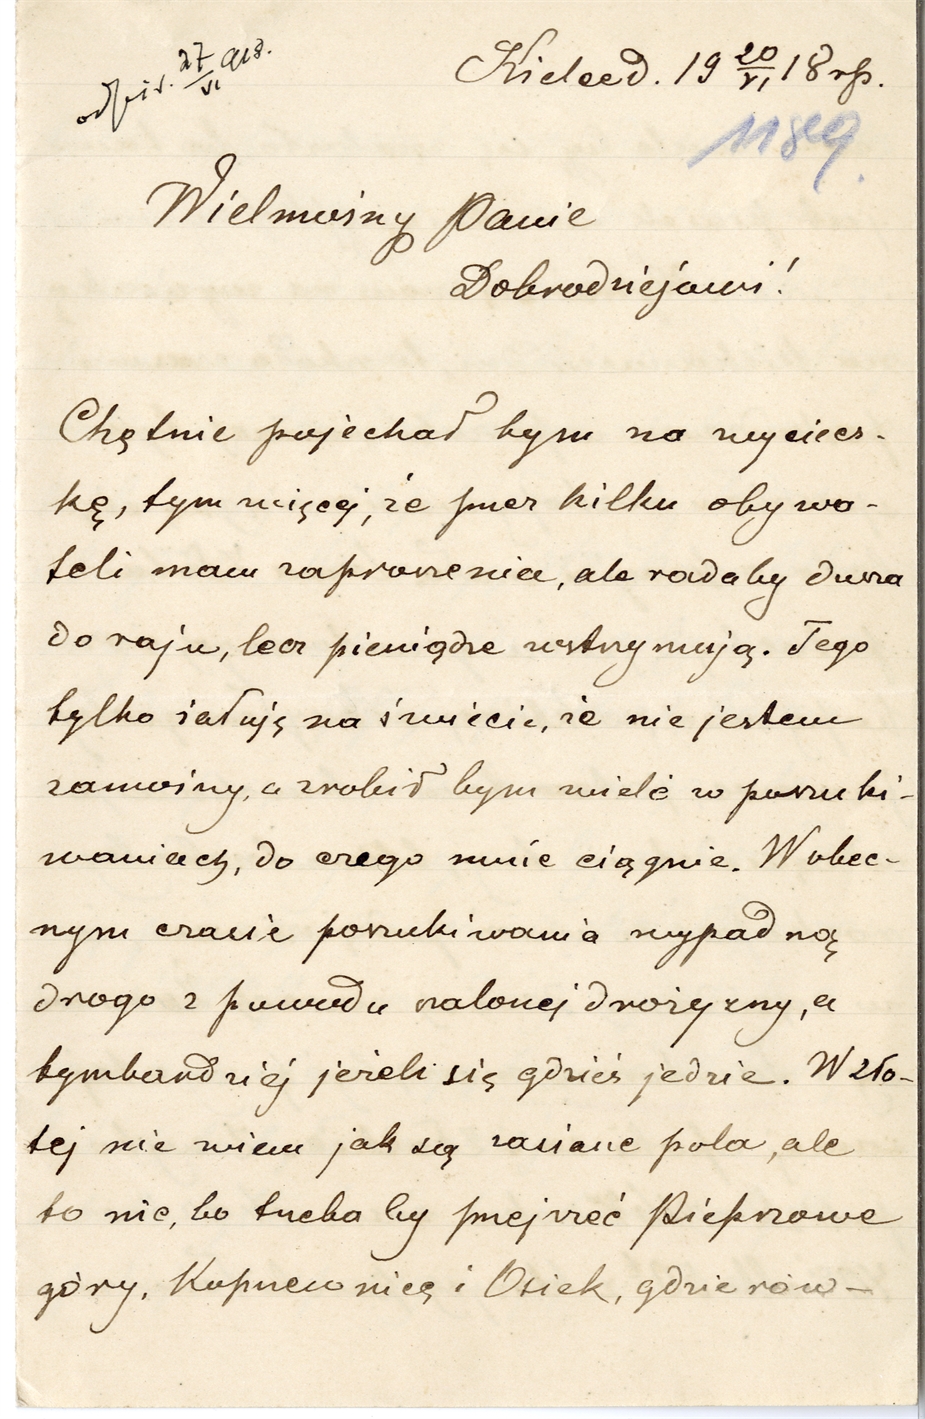 odpis. 27/VI 918.
Kielce d. 19 20/VI 18 r.
11889.
Wielmożny Panie
Dobrodziejowi!
Chętnie pojechał bym na wyciecz-
kę, tym więcej, że przez kilku obywa-
teli mam zaproszenia, ale radaby dusza
do raju, lecz pieniądze wstrzymują. Tego
tylko żałuję na świecie, że nie jestem
zamożny, a zrobił bym wiele w poszuki-
waniach, do czego mnie ciągnie. W obec-
nym czasie poszukiwania wypadną
drogo z powodu szalonej drożyzny, a
tymbardziej jeżeli się gdzieś jedzie. W Zło-
tej nie wiem jak są zasiane pola, ale
to nic, bo trzeba by przejrzeć Pieprzowe
góry, Koprzewnicę i Osiek, gdzie rów-